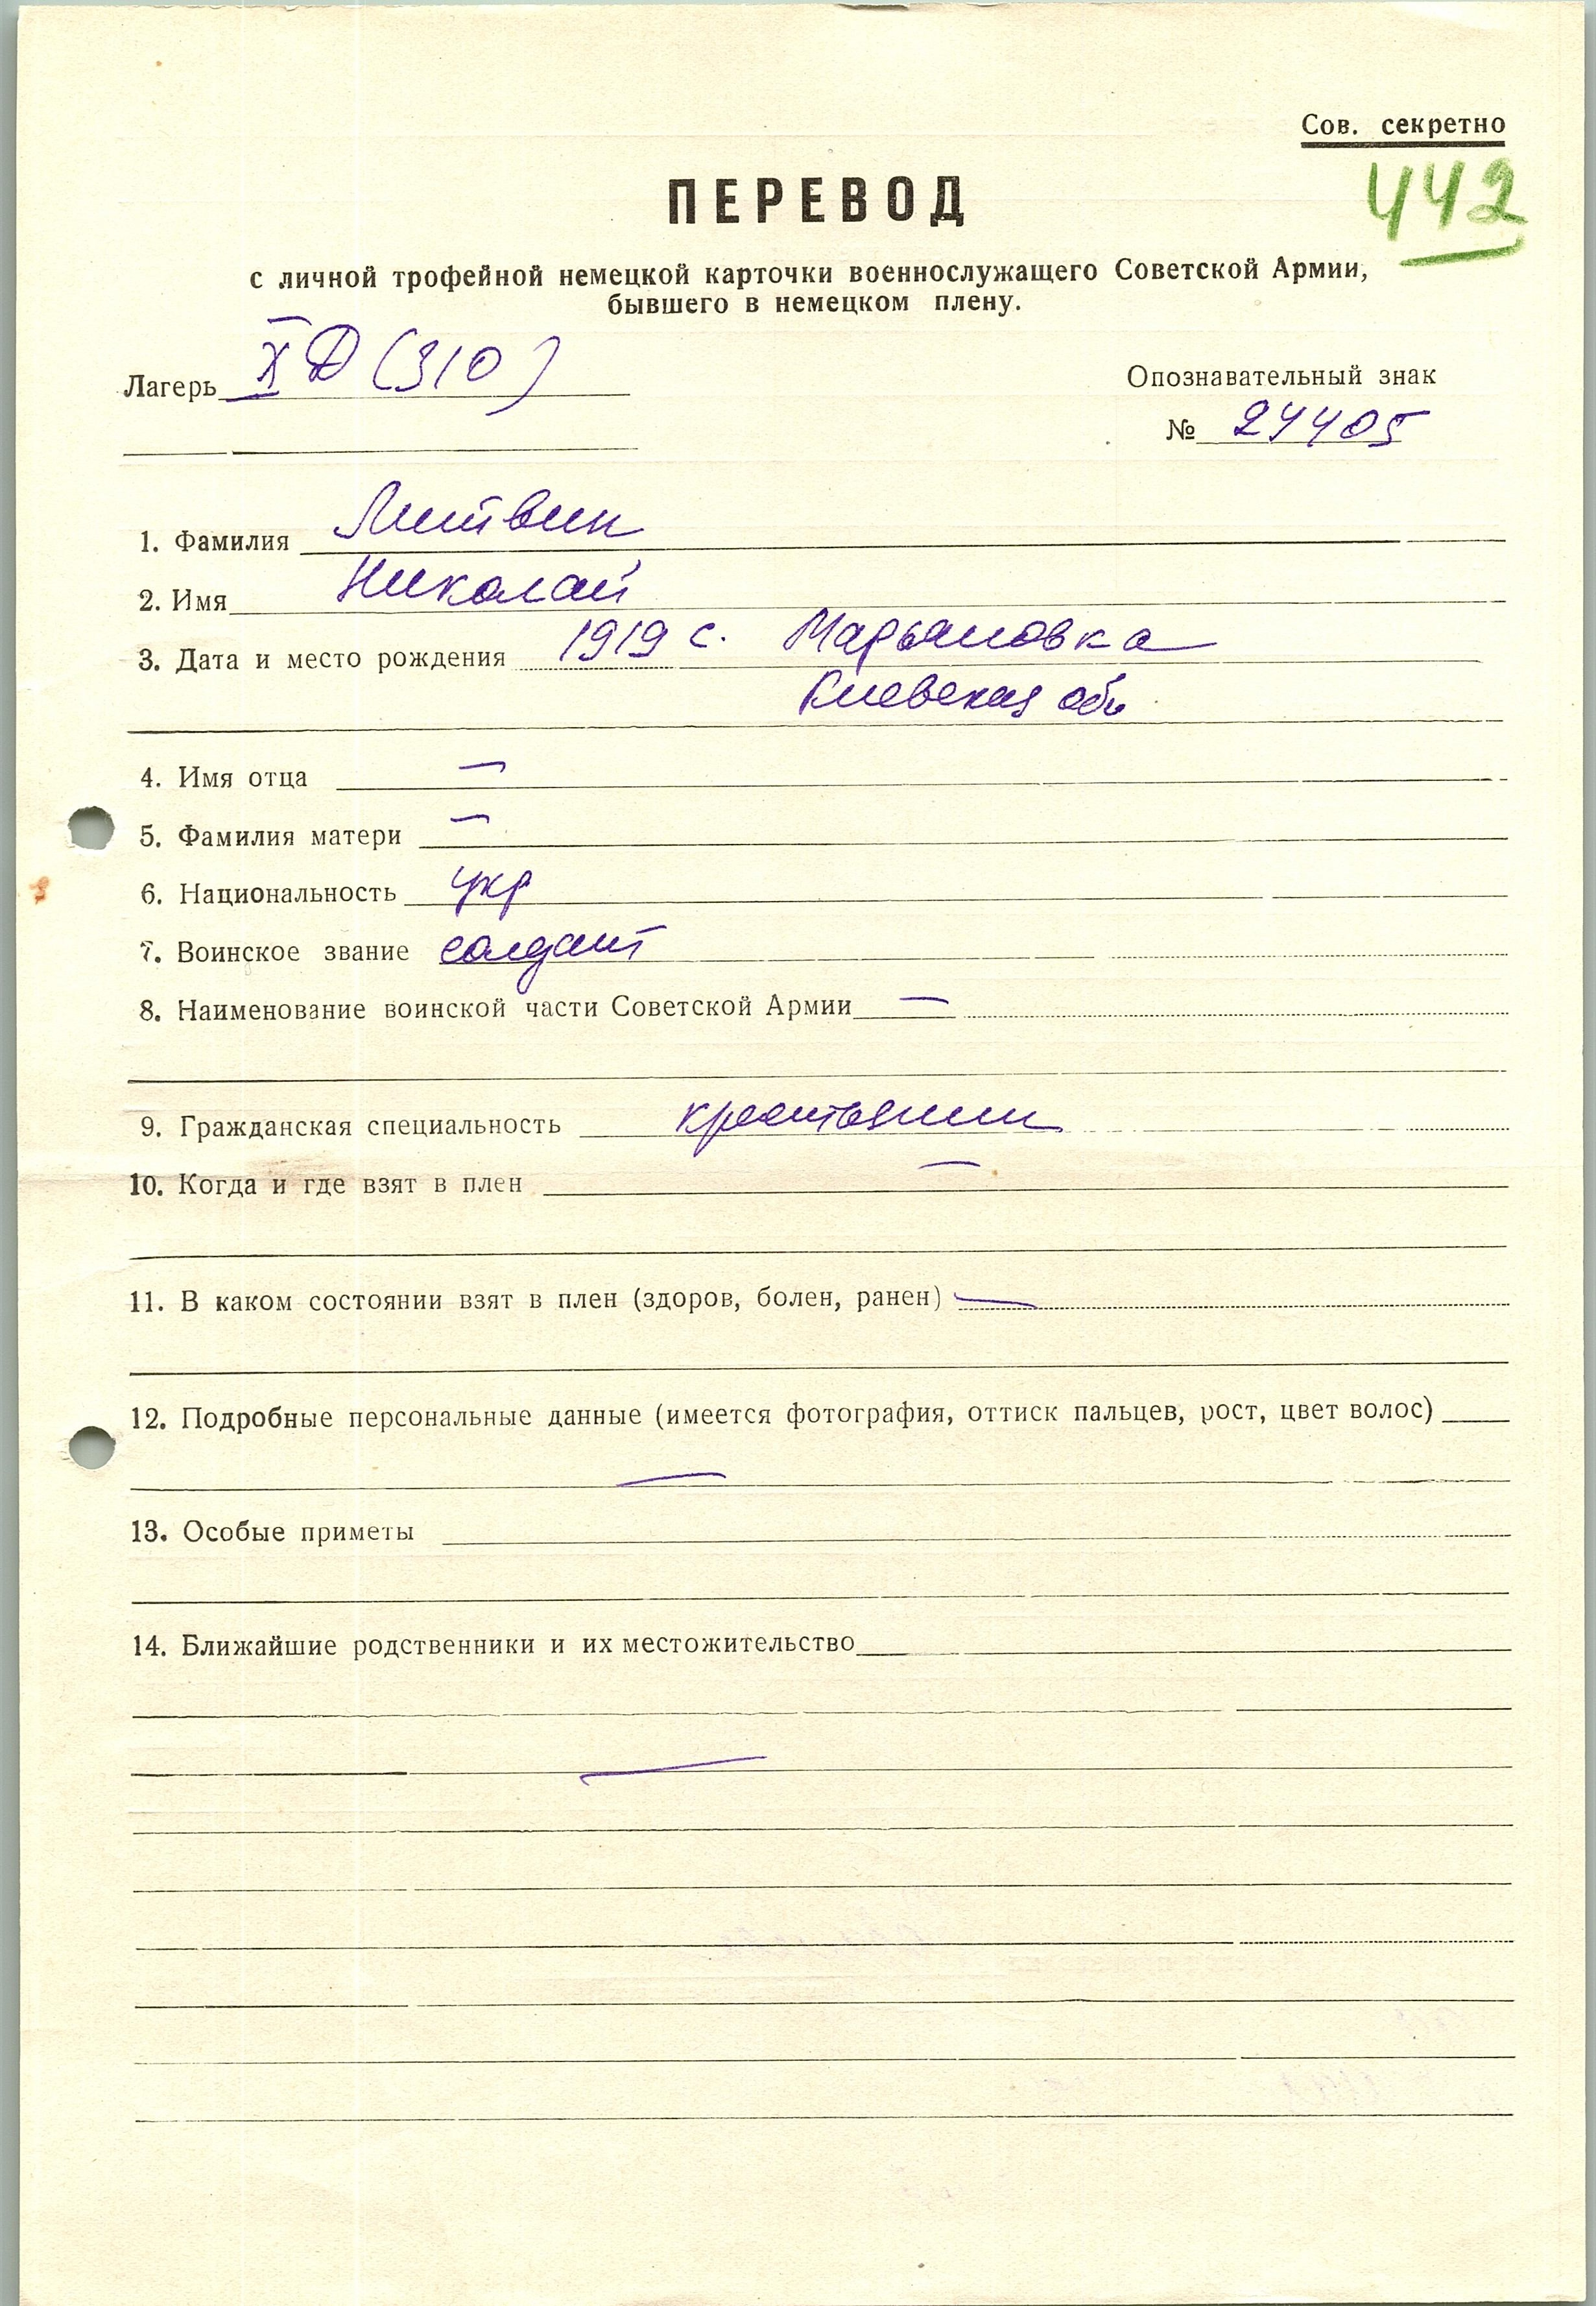 Сов. секретно
442
ПЕРЕВОД
с личной трофейной немецкой карточки военнослужащего Советской Армии,
бывшего в немецком плену.
Лагерь X Д (310)
Опознавательный знак
№ 24405
1. Фамилия Литвин
2. Имя Николай
3. Дата и место рождения 1919 с. Марьяновка
Киевская обл
4. Имя отца —
5. Фамилия матери —
6. Национальность укр
7. Воинское звание солдат
8. Наименование воинской части Советской Армии —
9. Гражданская специальность крестьянин
10. Когда и где взят в плен —
11. В каком состоянии взят в плен (здоров, болен, ранен) —
12. Подробные персональные данные (имеется фотография, оттиск пальцев, рост, цвет волос)
—
13. Особые приметы
14. Ближайшие родственники и их местожительство
—